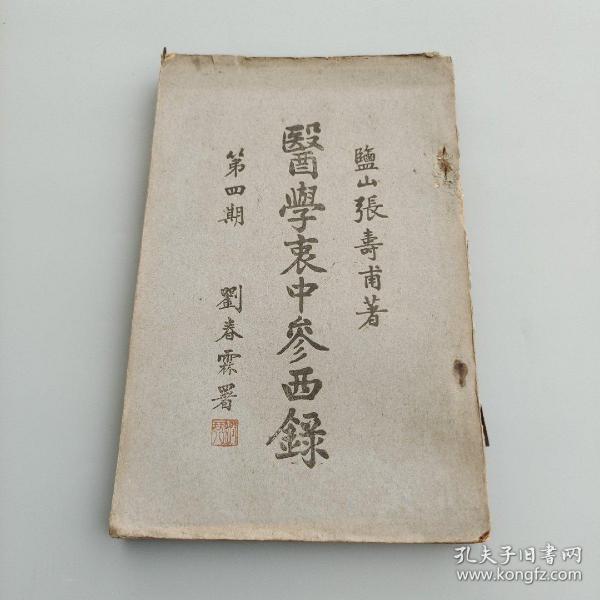 鹽山張壽甫著
醫學衷中參西錄
第四期
劉春霖署
孔夫子旧书网
www.kongfz.com